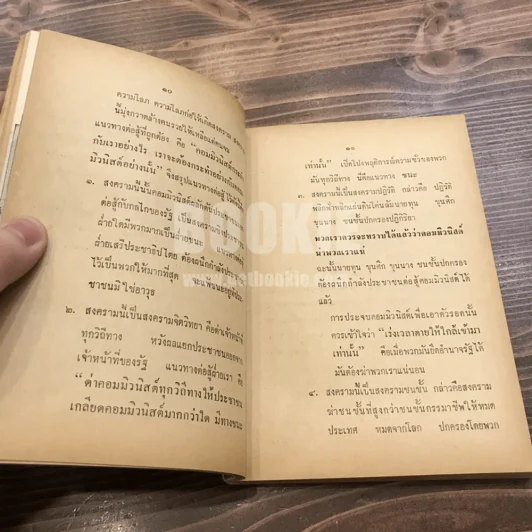 ๑๐
ความโลภ ความโลภก่อให้เกิดสงคราม
นี้มุ่งกวาดล้างคนรวยให้เหลือแต่คนจน
แนวทางต่อสู้ที่ถูกต้อง คือ "คอมมิวนิสต์กระทำ
กับเราอย่างไร เราจะต้องกระทำอย่างนั้น
มิวนิสต์อย่างนั้น" จึงสรุปแนวทางต่อสู้ ไว้ดังนี้
๑. สงครามนี้คอมมิวนิสต์
ต่อสู้กับกลไกของรัฐ เป็นสงคราม
ฝ่ายใดมีพวกมากเป็นฝ่ายชนะ
ฝ่ายเสรีประชาธิปไตย ต้องผนึกกำลังประชาชน
ไว้เป็นพวกให้มากที่สุด
ชาชนมิใช่อาวุธ
๒. สงครามนี้เป็นสงครามจิตวิทยา คือด่าเจ้าหน้าที่
ทุกวิถีทาง หวังผลแยกประชาชนออกจาก
เจ้าหน้าที่ของรัฐ แนวทางต่อสู้ฝ่ายเรา คือ
"ด่าคอมมิวนิสต์ทุกวิถีทางให้ประชาชน
เกลียดคอมมิวนิสต์มากกว่าใด มีทางชนะ
๑๑
เท่านั้น" เปิดโปงพฤติการณ์ความชั่วของพวก
มันทุกวิถีทาง นี่คือแนวทาง ชนะ
๓. สงครามนี้เป็นสงครามปฏิวัติ กล่าวคือ ปฏิวัติ
พลิกฟ้าพลิกแผ่นดินโค่นล้มนายทุน ขุนศึก
ขุนนาง ชนชั้นปกครองปฏิกิริยา
พวกเราควรจะทราบได้แล้วว่าคอมมิวนิสต์
ฆ่าพวกเราแน่
ฉะนั้นนายทุน ขุนศึก ขุนนาง ชนชั้นปกครอง
ต้องผนึกกำลังประชาชนต่อสู้คอมมิวนิสต์ได้
แล้ว
การประชุมคอมมิวนิสต์เพื่อเอาตัวรอดนั้น
ควรเข้าใจว่า "เร่งเวลาตายให้ใกล้เข้ามา
เท่านั้น" คือเมื่อพวกมันยึดอำนาจรัฐได้
มันต้องฆ่าพวกเราแน่นอน
๔. สงครามนี้เป็นสงครามชนชั้น กล่าวคือสงคราม
ฆ่าชนชั้นที่สูงกว่าชนชั้นกรรมาชีพให้หมด
ประเทศ หมดจากโลก ปกครองโดยพวก
www.hotbookie.com